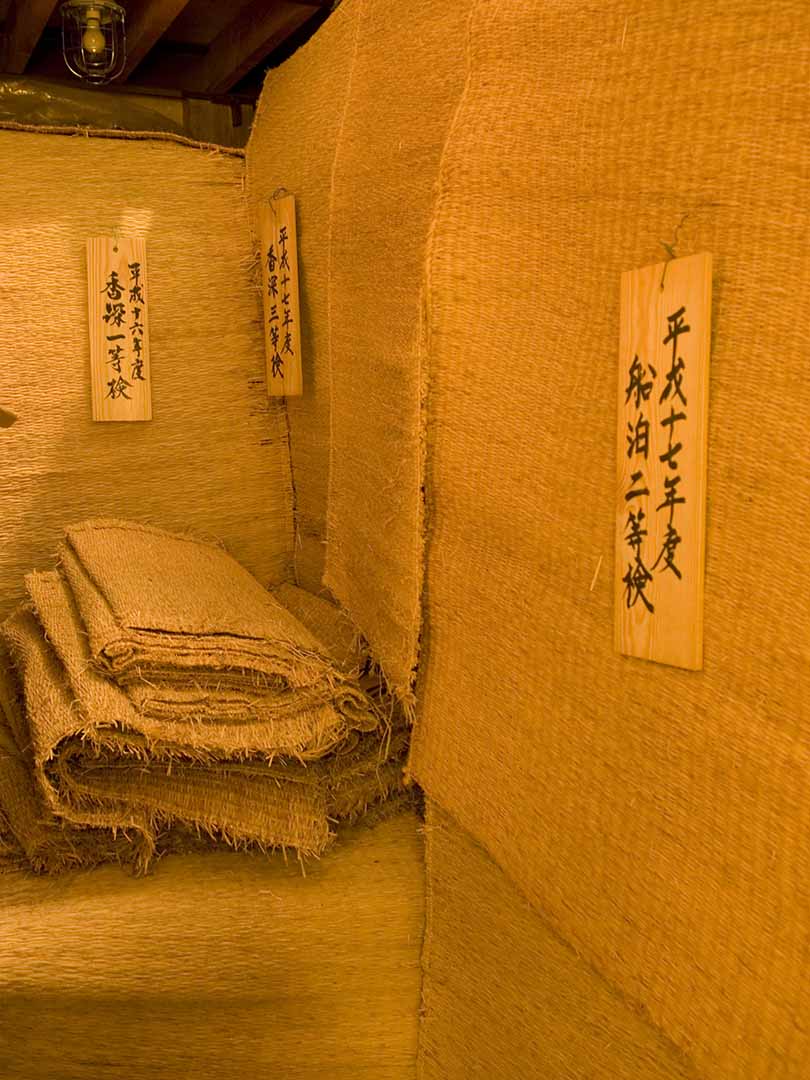 平成十六年度
香深一等検
平成十七年度
香深三等検
平成十七年度
船泊二等検